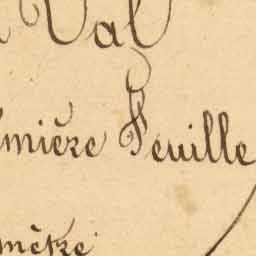 Val
mière Feuille
mètre